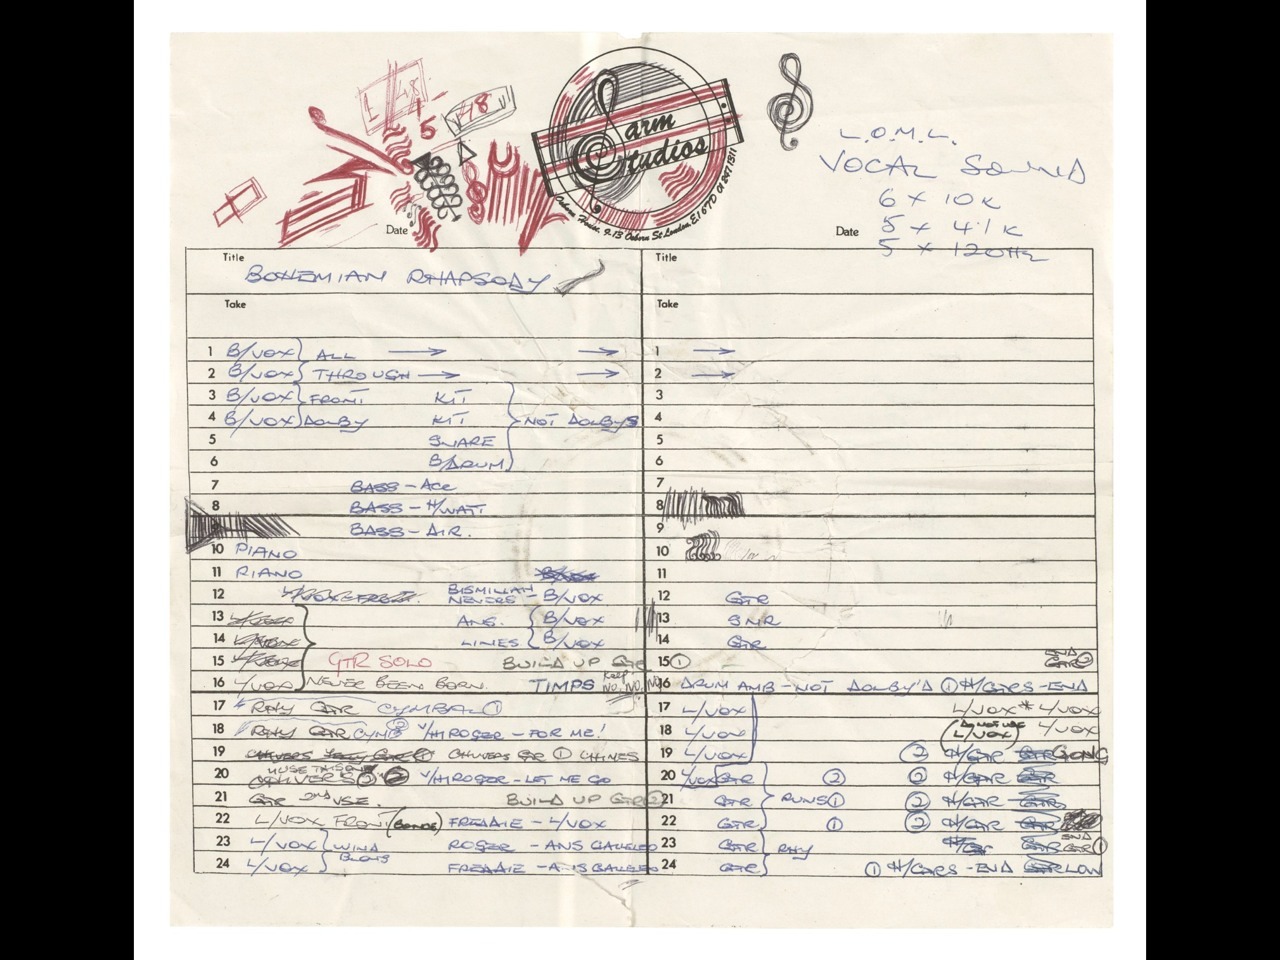 1 48
15
48
Sarm
Studios
Osborn House, 9-13 Osborn St London, E1 6TD 01 247 1311
L.O.M.L.
VOCAL SOUND
6 x 10K
5 x 4.1K
5 x 120Hz
Date
Date
Title
BOHEMIAN RHAPSODY
Title
Take
Take
1 B/VOX ALL → → 1 →
2 B/VOX THROUGH → → 2 →
3 B/VOX FRONT KIT 3
4 B/VOX DOLBY KIT NOT DOLBYS 4
5 SNARE 5
6 B/DRUM 6
7 BASS - ACE 7
8 BASS - H/WATT 8
9 BASS - AIR. 9
10 PIANO 10
11 PIANO 11
12 BISMILLAH NEVERS - B/VOX 12 GTR
13 ANS. B/VOX 13 SNR
14 LINES B/VOX 14 GTR
15 GTR SOLO BUILD UP GTR 15 ① END GTR ②
16 L/VOX NEVER BEEN BORN. TIMPS Keep NO. NO. NO 16 DRUM AMB - NOT DOLBY'D ① H/GTRS - END
17 RHY GTR CYMBAL ① 17 L/VOX L/VOX * L/VOX
18 RHY GTR CYM ② V/H ROGER - FOR ME! 18 L/VOX (DO NOT USE L/VOX) L/VOX
19 CHIVERS GTR ① CHIMES 19 L/VOX ② H/GTR GTR GONG
20 USE THIS ONE CHIVERS ② V/H ROGER - LET ME GO 20 L/VOX GTR ② ② H/GTR GTR
21 GTR 2ND VSE. BUILD UP GTR ② 21 GTR RUNS ① ② H/GTR GTR
22 L/VOX FRONT FREDDIE - L/VOX 22 GTR ① ② H/GTR GTR
23 L/VOX WIND ROGER - ANS GALILEO 23 GTR RHY H/GTR END GTR ①
24 L/VOX BLOWS FREDDIE - ANS GALILEO 24 GTR ① H/GTRS - END GTR LOW